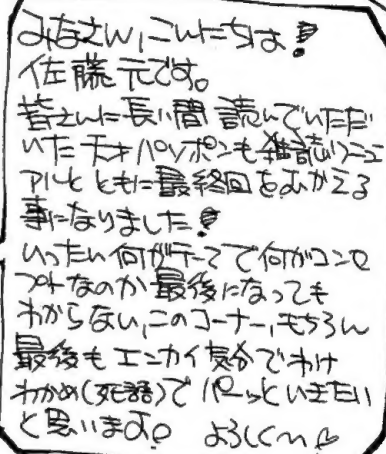 みなさん,こんにちは!
佐藤元です。
皆さんに長い間読んでいただ
いた天才パソポンも雑誌リニュ
アルとともに最終回をおかえる
事になりました!
いったい何がテーマで何がコンセ
プトなのか最後になっても
わからない,このコーナー,もちろん
最後もエンカイ気分でわけ
わかめ(死語)でパーッといきたい
と思います。よろしく〜♡